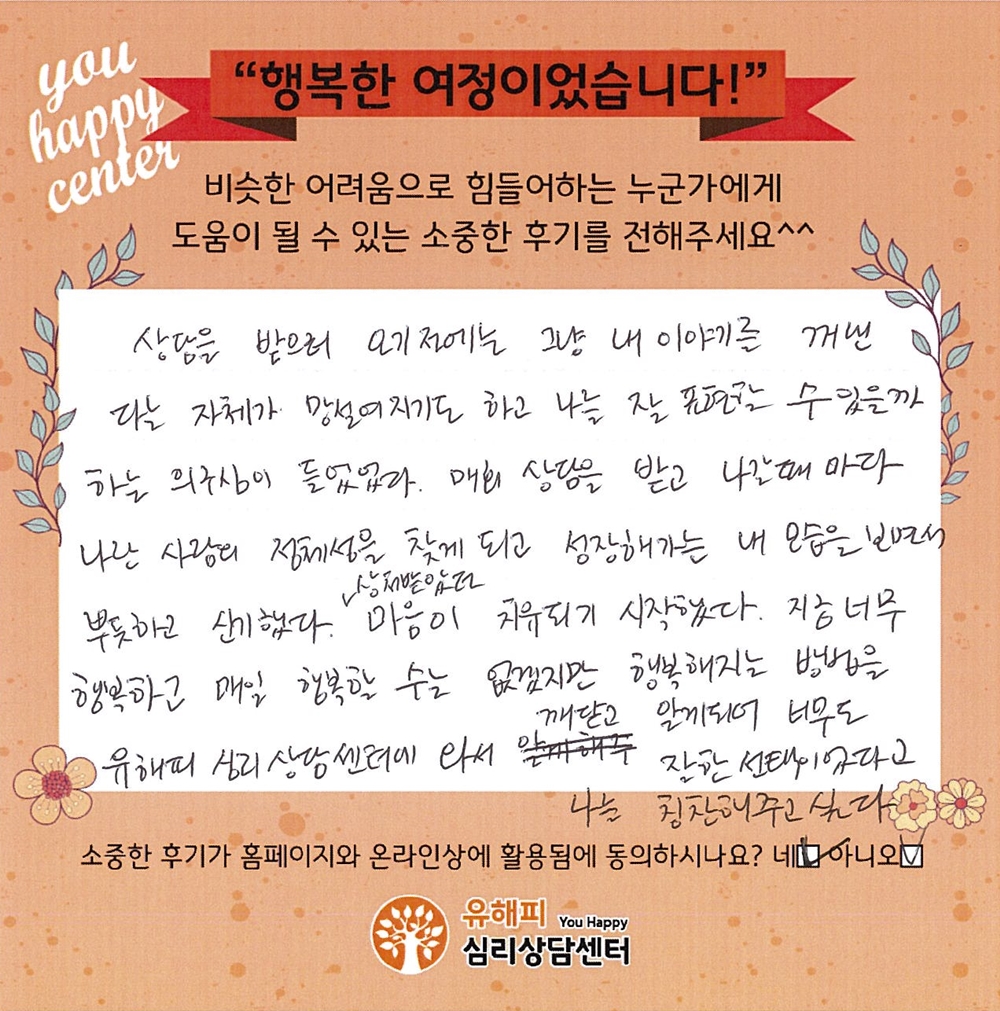 you
happy
center
“행복한 여정이었습니다!”
비슷한 어려움으로 힘들어하는 누군가에게
도움이 될 수 있는 소중한 후기를 전해주세요^^
상담을 받으러 오기전에는 그냥 내 이야기를 꺼낸
다는 자체가 망설여지기도 하고 나를 잘 표현할 수 있을까
하는 의구심이 들었었다. 매회 상담을 받고 나갈때 마다
나란 사람의 정체성을 찾게 되고 성장해가는 내 모습을 보면서
뿌듯하고 신기했다. 상처받았던 마음이 치유되기 시작했다. 지금 너무
행복하고 매일 행복할 수는 없겠지만 행복해지는 방법을
깨닫고 알게되어 너무도
유해피 심리상담센터에 와서 잘한 선택이었다고
나를 칭찬해주고 싶다
소중한 후기가 홈페이지와 온라인상에 활용됨에 동의하시나요? 네 아니오
유해피 You Happy
심리상담센터